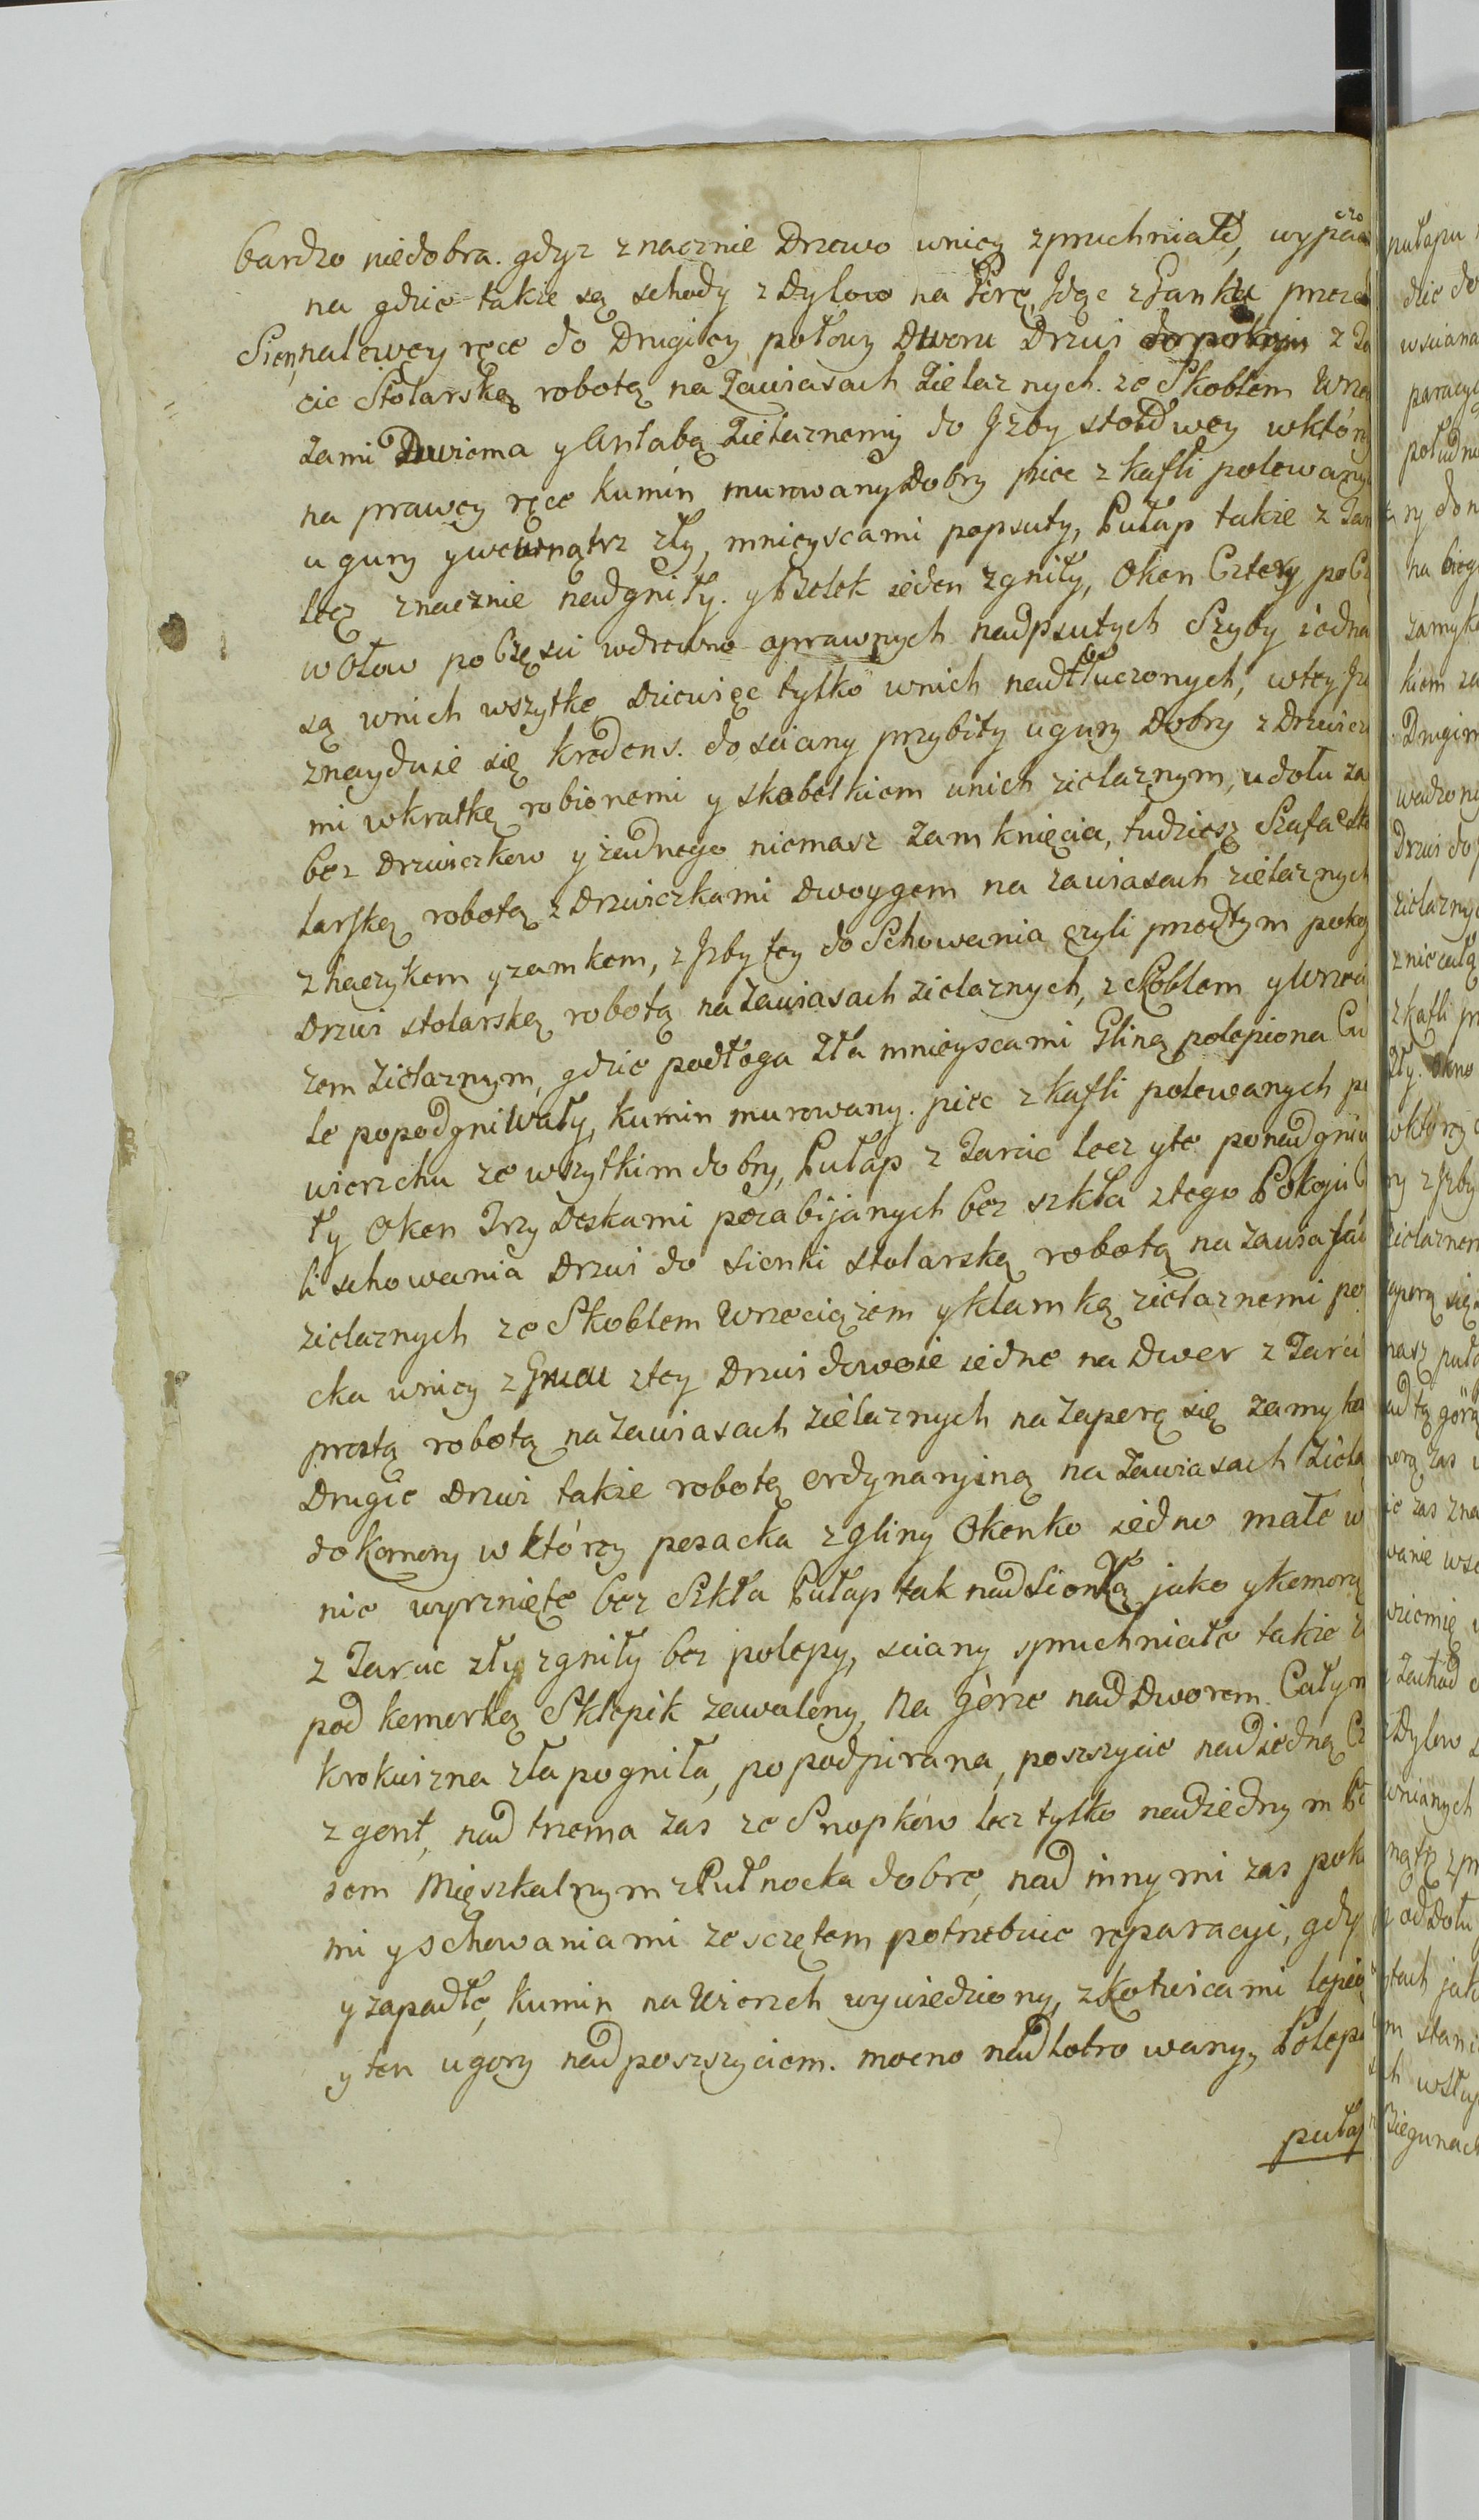 bardzo niedobra. gdyz znacznie Drzewo wnicy zpruchniało, wypaczo
na gdzie takze są schody z Dylow na Gorę, Idąc z Ganku przez
Sien, nalewey ręce do Drugiey połowy Dworu Drzwi do pokoju z Ta
cic Stolarską robotą na Zawiasach Zielaznych. ze Skoblem Wrze
zami Dwiema y Antabą Zielaznemi do Izby stołowey wktóre
na prawey ręce kumin murowany Dobry piec z kafli polewany
ugury ywewnątrz zły, mnieyscami popsuty, Pułap takze z Tar
lecz znacznie nadgniły. y Belek ieden zgniły, Okon Cztery po
w Ołow po Częsci wdrewno oprawnych nadpsutych Szyby iedna
są wnich wszytkę Dziewięc tylko wnich nadtłuczonych, wtey Iz
znayduie się kredens. do sciany przybity ugury Dobry z Drzwicz
mi wkratkę robionemi y skobelkiem unich zielaznym, udołu za
bez Drzwiczkow y zadnego niemasz zamknięcia, tudziesz Szafa sto
larską robotą z Drzwiczkami Dwoygem na zawiasach zielaznych
z haczykem yzamkem, z Izby tey do Schowania czyli przedtym pokoj
Drzwi stolarską robotą na Zawiasach zielaznych, z Skoblem y Wrzeci
zem Zielaznym, gdzie podłoga Zła mnieyscami Gliną polepiona
le popodgniwały, kumin murowany. piec z kafli polewanych po
wierzchu ze wszytkim dobry, Pułap z Tarcic lecz yte ponadgniw
ły Okon Trzy Deskami pozabijanych bez szkła ztego Pokoju
li schowania Drzwi do sionki stolarską robotą na zawiasach
zielaznych ze Skoblem Wrzeciązem y klamką zielaznemi po
cka wnicy z Gruzu ztey Drzwi dowoie iedne na Dwor z Tarci
prostą robotą na Zawiasach Zielaznych na Zaperę się zamyka
Drugie Drzwi takze robotą ordynaryiną na Zawiasach Ziela
do komory w ktorey posacka z gliny Okenko iedno małe w
nie wyrznięte bez Szkła Pułap tak nad Sionką jako y komorą
z Tarcic zły zgniły bez polepy, sciany spruchniałe takze
pod komorką Sklepik zawalony, na gorze nad Dworem Całym
krokwizna zła pogniła, popodpirana, poszszycie nadiedną
z gont, nad trzema zas ze Snopków lecz tylko nadiednym
iem Mięszkalnym z Pułnocka dobre, nad innymi zas poko
mi y schowaniami ze sczętem potrzebuie reparacyi, gdy
y zapadłe, kumin na Wierzch wywiedziony, z kotwicami lepio
y ten ugory nadposzszyciem. mocno nadlotrowany, Polepa
pułap